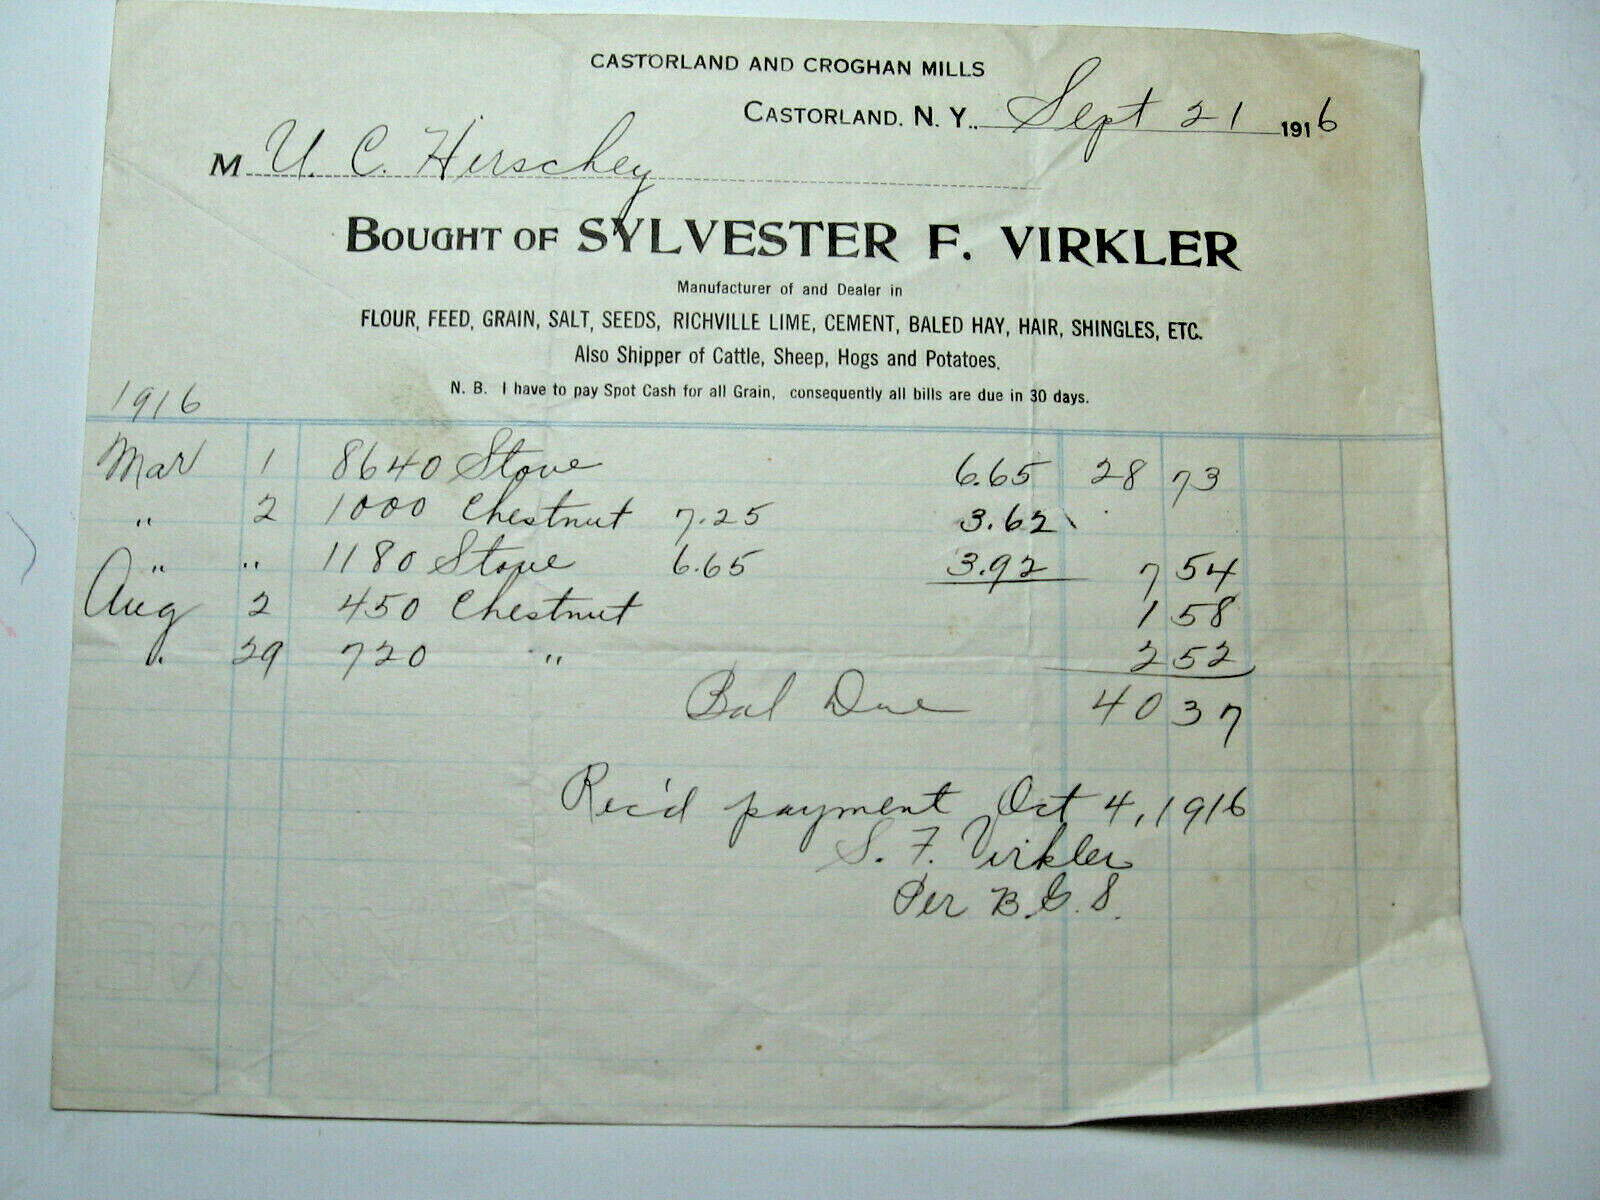 CASTORLAND AND CROGHAN MILLS
CASTORLAND. N. Y.. Sept 21 1916
M U. C. Hirschey
BOUGHT OF SYLVESTER F. VIRKLER
Manufacturer of and Dealer in
FLOUR, FEED, GRAIN, SALT, SEEDS, RICHVILLE LIME, CEMENT, BALED HAY, HAIR, SHINGLES, ETC.
Also Shipper of Cattle, Sheep, Hogs and Potatoes.
N. B. I have to pay Spot Cash for all Grain, consequently all bills are due in 30 days.
1916
Mar 1 8640 Stove 6.65 28 73
" 2 1000 Chestnut 7.25 3.62
" " 1180 Stove 6.65 3.92 7 54
Aug 2 450 Chestnut 1 58
" 29 720 " 2 52
Bal Due 40 37
Rec'd payment Oct 4, 1916
S. F. Virkler
Per B. G. S.